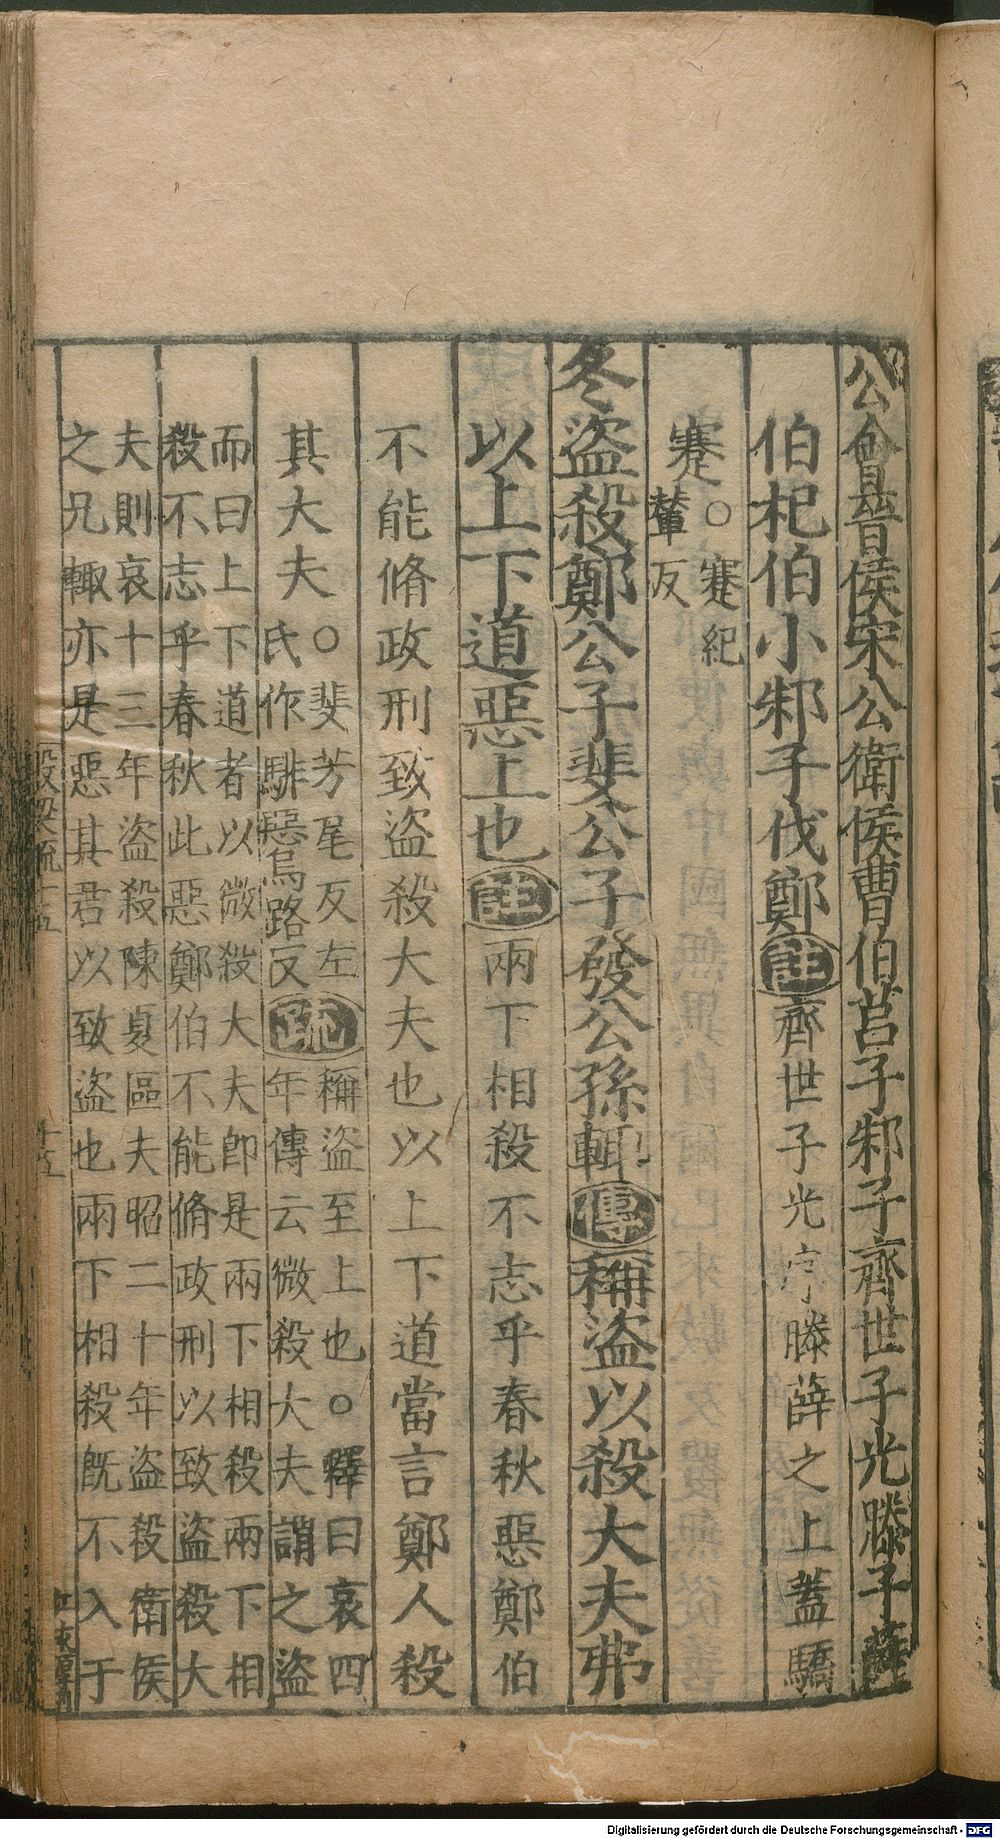 公會晉侯宋公衛侯曹伯莒子邾子齊世子光滕子薛
伯杞伯小邾子伐鄭註齊世子光序滕薛之上蓋驕
蹇○蹇紀
輦反
冬盜殺鄭公子斐公子發公孫輒傳稱盜以殺大夫弗
以上下道惡上也註兩下相殺不志乎春秋惡鄭伯
不能脩政刑致盜殺大夫也以上下道當言鄭人殺
其大夫○斐芳尾反左
氏作騑惡烏路反疏稱盜至上也○釋曰哀四
年傳云微殺大夫謂之盜
而曰上下道者以微殺大夫即是兩下相殺兩下相
殺不志乎春秋此惡鄭伯不能脩政刑以致盜殺大
夫則哀十三年盜殺陳夏區夫昭二十年盜殺衛侯
之兄輒亦是惡其君以致盜也兩下相殺既不入于
十五
Digitalisierung gefördert durch die Deutsche Forschungsgemeinschaft - DFG